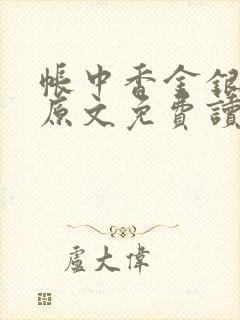 帳中香金銀
原文免費讀
盧大偉